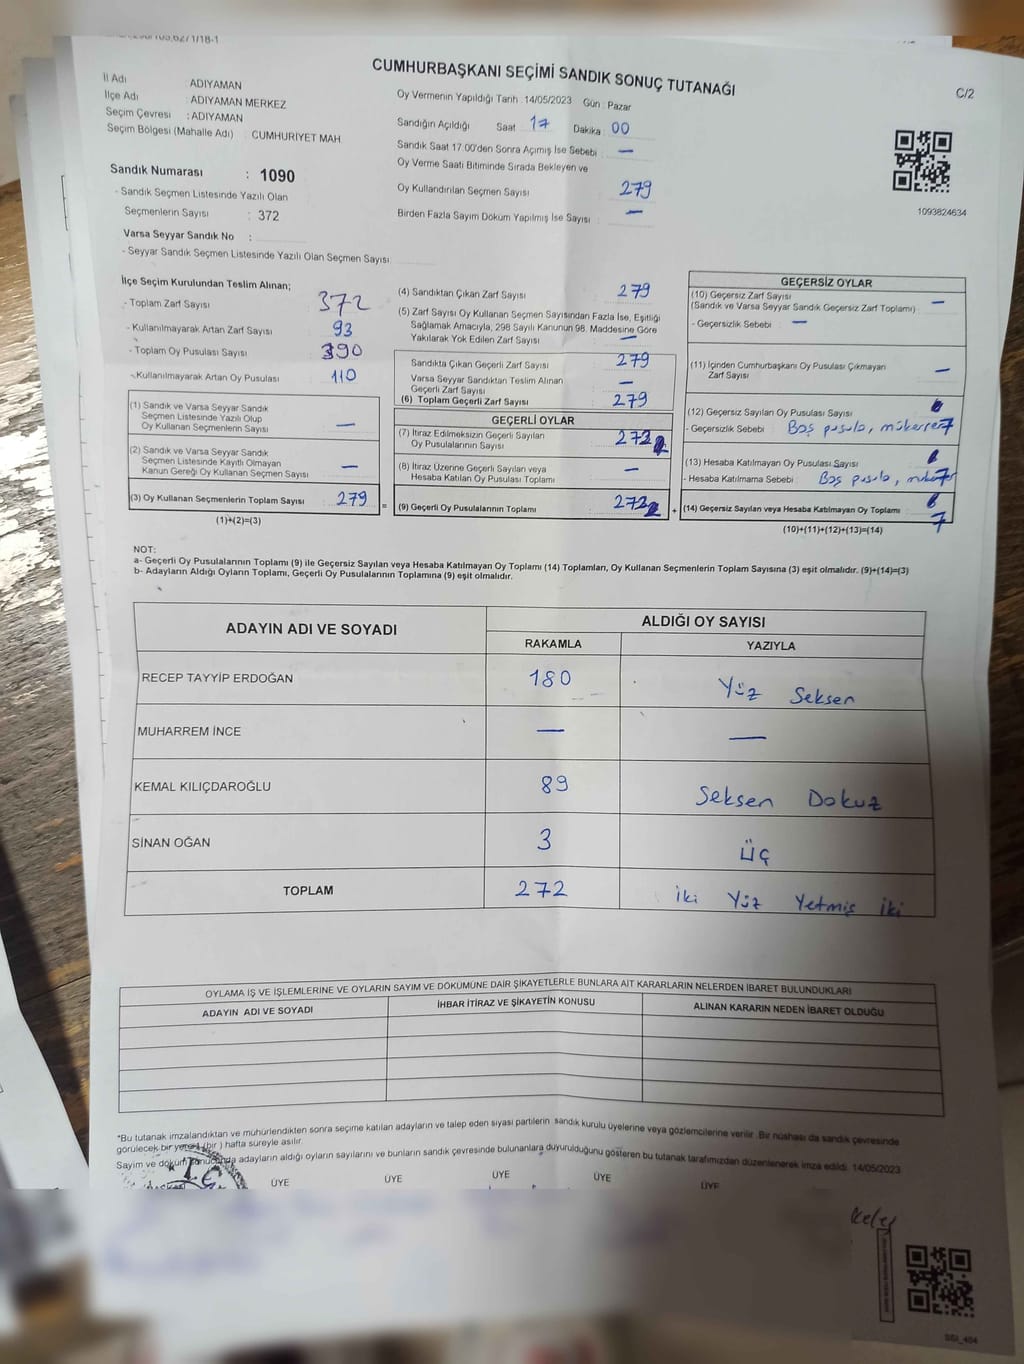 CUMHURBAŞKANI SEÇİMİ SANDIK SONUÇ TUTANAĞI
C/2
İl Adı : ADIYAMAN
İlçe Adı : ADIYAMAN MERKEZ
Seçim Çevresi : ADIYAMAN
Seçim Bölgesi (Mahalle Adı) : CUMHURİYET MAH
Sandık Numarası : 1090
- Sandık Seçmen Listesinde Yazılı Olan
Seçmenlerin Sayısı : 372
Varsa Seyyar Sandık No :
- Seyyar Sandık Seçmen Listesinde Yazılı Olan Seçmen Sayısı
Oy Vermenin Yapıldığı Tarih : 14/05/2023 Gün : Pazar
Sandığın Açıldığı Saat 17 Dakika : 00
Sandık Saat 17.00'den Sonra Açımış İse Sebebi : —
Oy Verme Saati Bitiminde Sırada Bekleyen ve
Oy Kullandırılan Seçmen Sayısı 279
Birden Fazla Sayım Döküm Yapılmış İse Sayısı : —
1093824634
İlçe Seçim Kurulundan Teslim Alınan;
- Toplam Zarf Sayısı 372
- Kullanılmayarak Artan Zarf Sayısı 93
- Toplam Oy Pusulası Sayısı 390
- Kullanılmayarak Artan Oy Pusulası 110
(1) Sandık ve Varsa Seyyar Sandık
Seçmen Listesinde Yazılı Olup
Oy Kullanan Seçmenlerin Sayısı —
(2) Sandık ve Varsa Seyyar Sandık
Seçmen Listesinde Kayıtlı Olmayan
Kanun Gereği Oy Kullanan Seçmen Sayısı —
(3) Oy Kullanan Seçmenlerin Toplam Sayısı 279
(1)+(2)=(3)
(4) Sandıktan Çıkan Zarf Sayısı 279
(5) Zarf Sayısı Oy Kullanan Seçmen Sayısından Fazla İse, Eşitliği
Sağlamak Amacıyla, 298 Sayılı Kanunun 98. Maddesine Göre
Yakılarak Yok Edilen Zarf Sayısı —
Sandıkta Çıkan Geçerli Zarf Sayısı 279
Varsa Seyyar Sandıktan Teslim Alınan
Geçerli Zarf Sayısı —
(6) Toplam Geçerli Zarf Sayısı 279
GEÇERLİ OYLAR
(7) İtiraz Edilmeksizin Geçerli Sayılan
Oy Pusulalarının Sayısı 272
(8) İtiraz Üzerine Geçerli Sayılan veya
Hesaba Katılan Oy Pusulası Toplamı —
(9) Geçerli Oy Pusulalarının Toplamı 272
GEÇERSİZ OYLAR
(10) Geçersiz Zarf Sayısı
(Sandık ve Varsa Seyyar Sandık Geçersiz Zarf Toplamı) —
- Geçersizlik Sebebi : —
(11) İçinden Cumhurbaşkanı Oy Pusulası Çıkmayan
Zarf Sayısı —
(12) Geçersiz Sayılan Oy Pusulası Sayısı
- Geçersizlik Sebebi Boş pusula, mükerrer 7
(13) Hesaba Katılmayan Oy Pusulası Sayısı
- Hesaba Katılmama Sebebi Boş pusula,
(14) Geçersiz Sayılan veya Hesaba Katılmayan Oy Toplamı 7
(10)+(11)+(12)+(13)=(14)
NOT:
a- Geçerli Oy Pusulalarının Toplamı (9) ile Geçersiz Sayılan veya Hesaba Katılmayan Oy Toplamı (14) Toplamları, Oy Kullanan Seçmenlerin Toplam Sayısına (3) eşit olmalıdır. (9)+(14)=(3)
b- Adayların Aldığı Oyların Toplamı, Geçerli Oy Pusulalarının Toplamına (9) eşit olmalıdır.
ADAYIN ADI VE SOYADI ALDIĞI OY SAYISI
RAKAMLA YAZIYLA
RECEP TAYYİP ERDOĞAN 180 Yüz Seksen
MUHARREM İNCE — —
KEMAL KILIÇDAROĞLU 89 Seksen Dokuz
SİNAN OĞAN 3 Üç
TOPLAM 272 İki Yüz Yetmiş iki
OYLAMA İŞ VE İŞLEMLERİNE VE OYLARIN SAYIM VE DÖKÜMÜNE DAİR ŞİKAYETLERLE BUNLARA AİT KARARLARIN NELERDEN İBARET BULUNDUKLARI
ADAYIN ADI VE SOYADI İHBAR İTİRAZ VE ŞİKAYETİN KONUSU ALINAN KARARIN NEDEN İBARET OLDUĞU
*Bu tutanak imzalandıktan ve mühürlendikten sonra seçime katılan adayların ve talep eden siyasi partilerin sandık kurulu üyelerine veya gözlemcilerine verilir. Bir nüshası da sandık çevresinde
görülecek bir yere 1 (bir) hafta süreyle asılır.
Sayım ve döküm sonucunda adayların aldığı oyların sayılarını ve bunların sandık çevresinde bulunanlara duyurulduğunu gösteren bu tutanak tarafımızdan düzenlenerek imza edildi. 14/05/2023
ÜYE ÜYE ÜYE ÜYE ÜYE